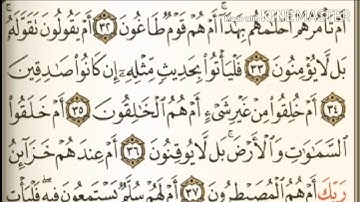 أَمْ تَأْمُرُهُمْ أَحْلَٰمُهُم بِهَٰذَآ أَمْ هُمْ قَوْمٌ طَاغُونَ ٣٢ أَمْ يَقُولُونَ تَقَوَّلَهُۥ
بَل لَّا يُؤْمِنُونَ ٣٣ فَلْيَأْتُوا۟ بِحَدِيثٍ مِّثْلِهِۦٓ إِن كَانُوا۟ صَٰدِقِينَ
٣٤ أَمْ خُلِقُوا۟ مِنْ غَيْرِ شَىْءٍ أَمْ هُمُ ٱلْخَٰلِقُونَ ٣٥ أَمْ خَلَقُوا۟
ٱلسَّمَٰوَٰتِ وَٱلْأَرْضَ بَل لَّا يُوقِنُونَ ٣٦ أَمْ عِندَهُمْ خَزَآئِنُ
رَبِّكَ أَمْ هُمُ ٱلْمُصَۣيْطِرُونَ ٣٧ أَمْ لَهُمْ سُلَّمٌ يَسْتَمِعُونَ فِيهِ فَلْيَأْتِ
KINEMASTER